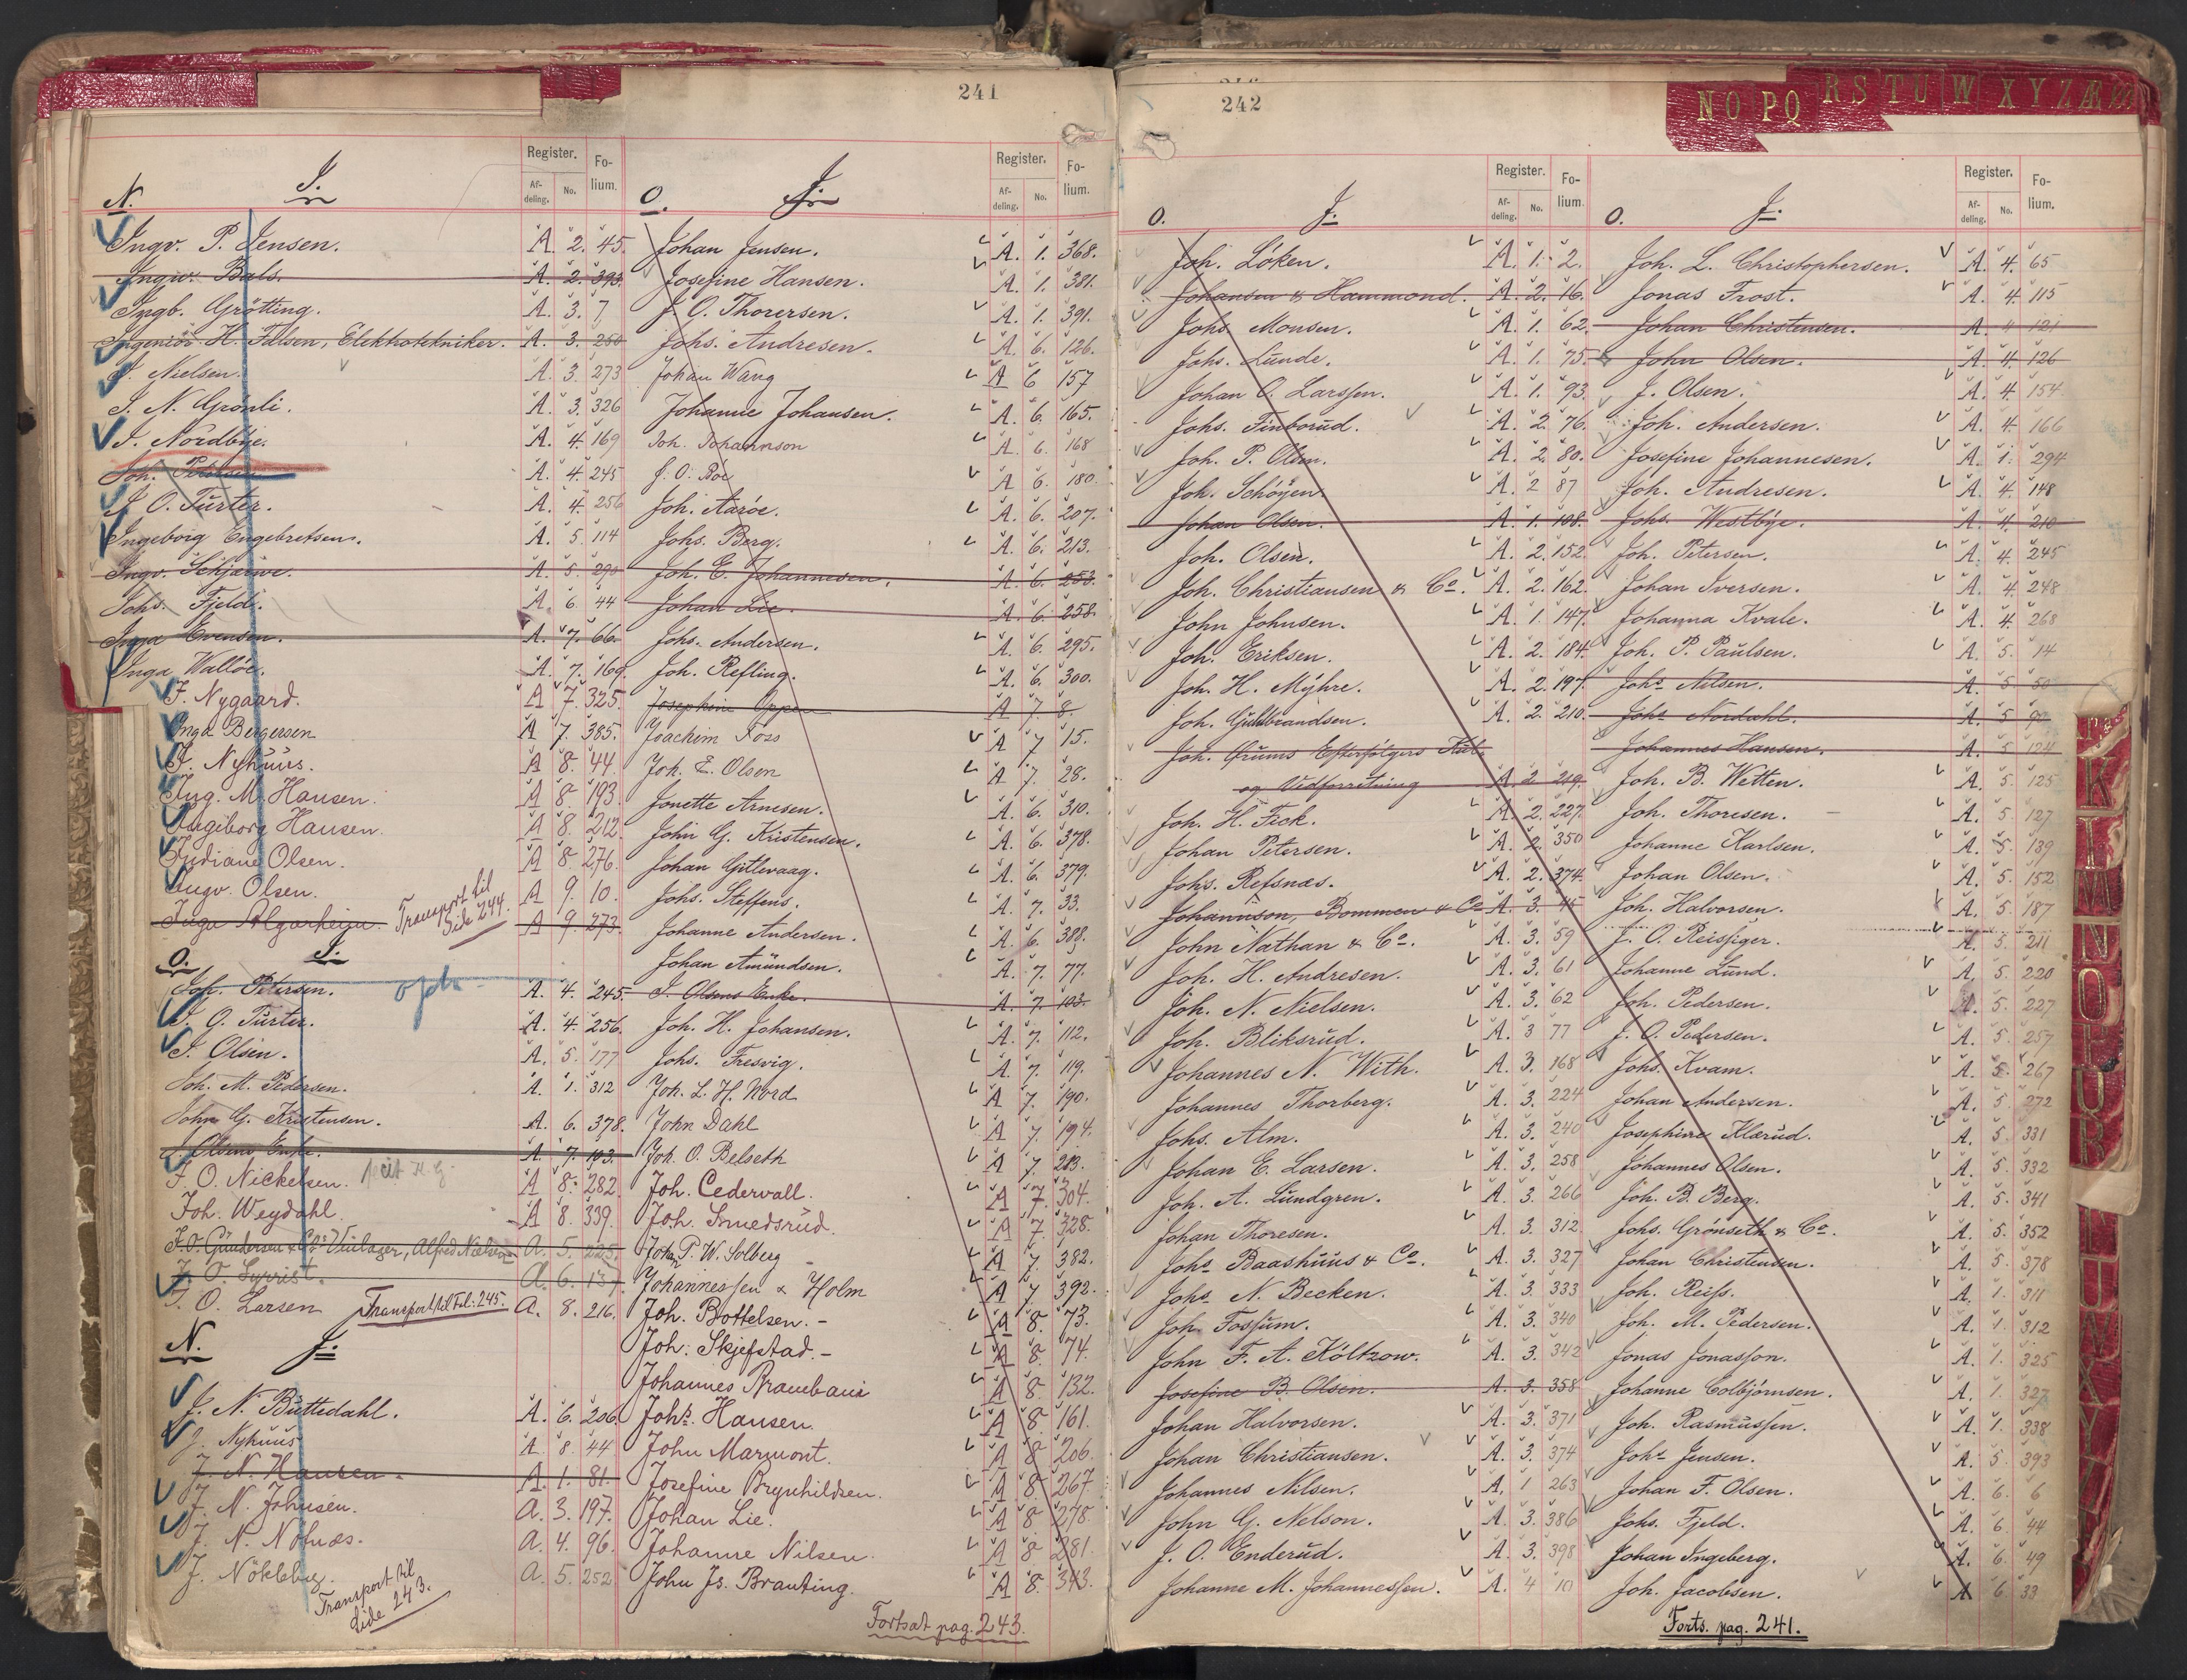 241
N. I.
Register. Folium.
Afdeling. No.
Ingv. P. Jensen. A. 2. 45.
Ingw. Bals. A. 2. 393.
Ingb. Grötting. A. 3. 7
Ingeniör H. Falsen, Elektrotekniker. A. 3. 250
I. Nielsen. A. 3. 273
I. N. Grönli. A. 3. 326
I. Nordbye. A. 4. 169
Joh. Petersen A. 4. 245
I. O. Turter. A. 4. 256
Ingeborg Engebretsen. A. 5. 114
Ingv. Schjærve. A. 5. 290
Johs. Fjeld. A. 6. 44
Inga Evensen. A. 7. 66.
Inga Wallöe. A. 7. 169.
I. Nygaard. A 7. 325.
Inga Bergersen A 7. 385.
I. Nyhuus. A 8. 44.
Ing. M. Hansen. A 8. 193.
Ingeborg Hansen. A 8. 212.
Indiane Olsen. A 8. 276.
Ingv. Olsen. A 9. 10.
Inga Algarheim. A 9. 273.
Transport til
Side 244.
O. I.
Joh. Petersen. A. 4. 245.
I. O. Turter. A. 4. 256.
I. Olsen. A. 5. 177
Joh. M. Pedersen. A. 1. 312
John G. Kristensen. A. 6. 378.
I. Olsens Enke. A. 7. 103.
I. O. Nickelsen. A 8. 282.
Joh. Weydahl A 8. 339.
I. O. Gundersen & Co's Vinlager, Alfred Nielsen A. 5. 225.
J. O. Syvrist. A. 6. 137.
J. O. Larsen Transport til Fol: 245. A. 8. 216.
N. J.
J. N. Buttedahl. A. 6. 206.
J. Nyhuus A. 8. 44
J. N. Hansen. A. 1. 81.
J. N. Johnsen. A. 3. 197.
J. N. Nöhnæs. A. 4. 96.
J. Nökleby. A. 5. 252
Transport til
Side 243.
O. J.
Register. Folium.
Afdeling. No.
Johan Jensen. A. 1. 368.
Josefine Hansen. A. 1. 381.
J. O. Thorersen. A. 1. 391.
Johs. Andresen. A. 6. 126.
Johan Wang A 6 157
Johanne Johansen. A. 6. 165.
Joh. Johannson A. 6. 168
J. O. Böe A 6. 180.
Joh. Aaröe. A. 6. 207.
Johs. Berg. A. 6. 213.
Joh. E. Johannesen. A. 6. 253.
Johan Lie. A. 6. 258.
Johs. Andersen. A. 6. 295.
Joh. Refling. A. 6. 300.
Josephine Oppen A 7. 8
Joachim Foss A 7 15.
Joh. E. Olsen A 7. 28.
Jonette Arnesen. A. 6. 310.
John G. Kristensen. A. 6. 378.
Johan Gitlevaag. A. 6. 379.
Johs. Steffens. A. 7. 33.
Johanne Andersen. A. 6. 388.
Johan Amundsen. A. 7. 77.
I. Olsens Enke. A. 7. 103.
Joh. H. Johansen. A. 7. 112.
Johs. Fresvig. A. 7. 119.
Joh. L. H. Nord A 7. 190.
John Dahl A 7. 194.
Joh. O. Belseth A 7. 213.
Joh. Cedervall. A 7. 304.
Joh. Smedsrud. A 7. 328.
Joh. P. W. Solberg A 7. 382.
Johannessen & Holm A 7 392.
Joh. Bottelsen. A 8. 73.
Joh. Skjefstad. A 8. 74.
Johannes A 8. 132.
Johs. Hansen A 8. 161.
John Marmont. A 8 206.
Josefine Brynhildsen. A 8 267.
Johan Lie. A 8 278.
Johanne Nilsen. A 8 281.
John Js. Brauting. A 8. 343.
Fortsat pag. 243.
242
O. J.
Register. Folium.
Afdeling. No.
Joh. Löken. A. 1. 2.
Johansen & Hammond. A. 2. 16.
Johs. Monsen. A. 1. 62.
Johs. Lunde. A. 1. 75.
Johan O. Larssen. A. 1. 93.
Johs. Finborud. A. 2. 76.
Joh. P. Olsen. A. 2. 80.
Joh. Schöyen. A. 2 87
Johan Olsen. A. 1. 108.
Joh. Olsen. A. 2. 152.
Joh. Christiansen & Co. A. 2. 162.
John Johnsen. A. 1. 147.
Joh. Eriksen. A. 2. 184.
Joh. H. Myhre. A. 2. 197.
Joh. Gulbrandsen. A. 2. 210.
Joh. Grums Efterfölgers Kul-
og Vedforretning A 2 219.
Joh. H. Feck. A. 2. 227.
Johan Petersen. A. 2. 350
Johs. Refsnæs. A. 2. 374.
Johannson, Bommen & Co A. 3. 45
John Nathan & Co. A. 3. 59
Joh. H. Andresen. A. 3. 61
Joh. N. Nielsen. A. 3. 62
Joh. Bliksrud. A. 3 77
Johannes N. With. A. 3. 168
Johannes Thorberg. A. 3. 224
Johs. Alm. A. 3. 240
Johan E. Larsen. A. 3. 258
Joh. A. Lundgren. A. 3. 266
Johan Thoresen. A. 3. 312.
Johs Baashuus & Co. A. 3. 327
Johs. N. Becken. A. 3. 333
Joh. Fossum. A. 3. 340
John F. A. Költzow. A. 3. 342
Josefine B. Olsen. A. 3. 358
Johan Halvorsen. A. 3. 371
Johan Christiansen. A. 3. 374
Johannes Nilsen. A. 1 263
John G. Nelson. A. 3. 386
J. O. Enderud. A. 3. 398
Johanne M. Johannessen. A. 4 10
O. J.
Register. Folium.
Afdeling. No.
Joh. L. Christophersen. A. 4. 65
Jonas Frost. A. 4. 115
Johan Christensen. A. 4 121
John Olsen. A. 4. 126
J. Olsen. A. 4. 154
Joh. Andersen. A. 4. 166
Josefine Johannesen. A. 1. 294
Joh. Andresen. A. 4. 148
Johs. Westbye. A. 4. 210
Joh. Petersen. A. 4. 245
Johan Iversen. A. 4. 248
Johanna Kvale. A. 4. 268
Joh. P. Paulsen. A. 5. 14
Johs Nilsen. A. 5 50
Johs Nordahl. A. 5
Johannes Hansen. A. 5 124
Joh. B. Wetten. A. 5. 125
Joh. Thoresen. A. 5. 127
Johanne Karlsen. A. 5. 139
Johan Olsen. A. 5. 152
Joh. Halvorsen. A. 5. 187
J. O. Reissiger. A. 5. 211
Johanne Lund. A. 5. 220
Joh. Pedersen. A. 5. 227
J. O. Pedersen. A. 5. 257
Johs. Kvam. A. 5. 267
Johan Andersen. A. 5. 272
Josephine Klærud. A. 5. 331
Johannes Olsen. A. 5. 332
Joh. B. Berg. A. 5. 341
Johs. Grönseth & Co. A. 5. 352
Johan Christensen. A. 5. 378
Joh. Reiss. A. 1. 311
Joh. M. Pedersen. A. 1. 312
Jonas Jonasson. A. 1. 325
Johanne Colbjörnsen. A. 1. 327
Joh. Rasmussen. A. 1. 338
Johs Jensen. A. 5. 393
Johan F. Olsen. A. 6. 6
Johs. Fjeld. A. 6. 44
Johan Ingeberg. A. 6. 49
Joh. Jacobsen. A 6 33
Forts. pag. 241.
N O P Q R S T U W X Y Z Æ
K L M N O P Q R